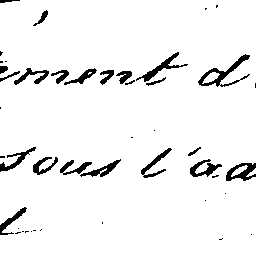 ment d
sous l'ad